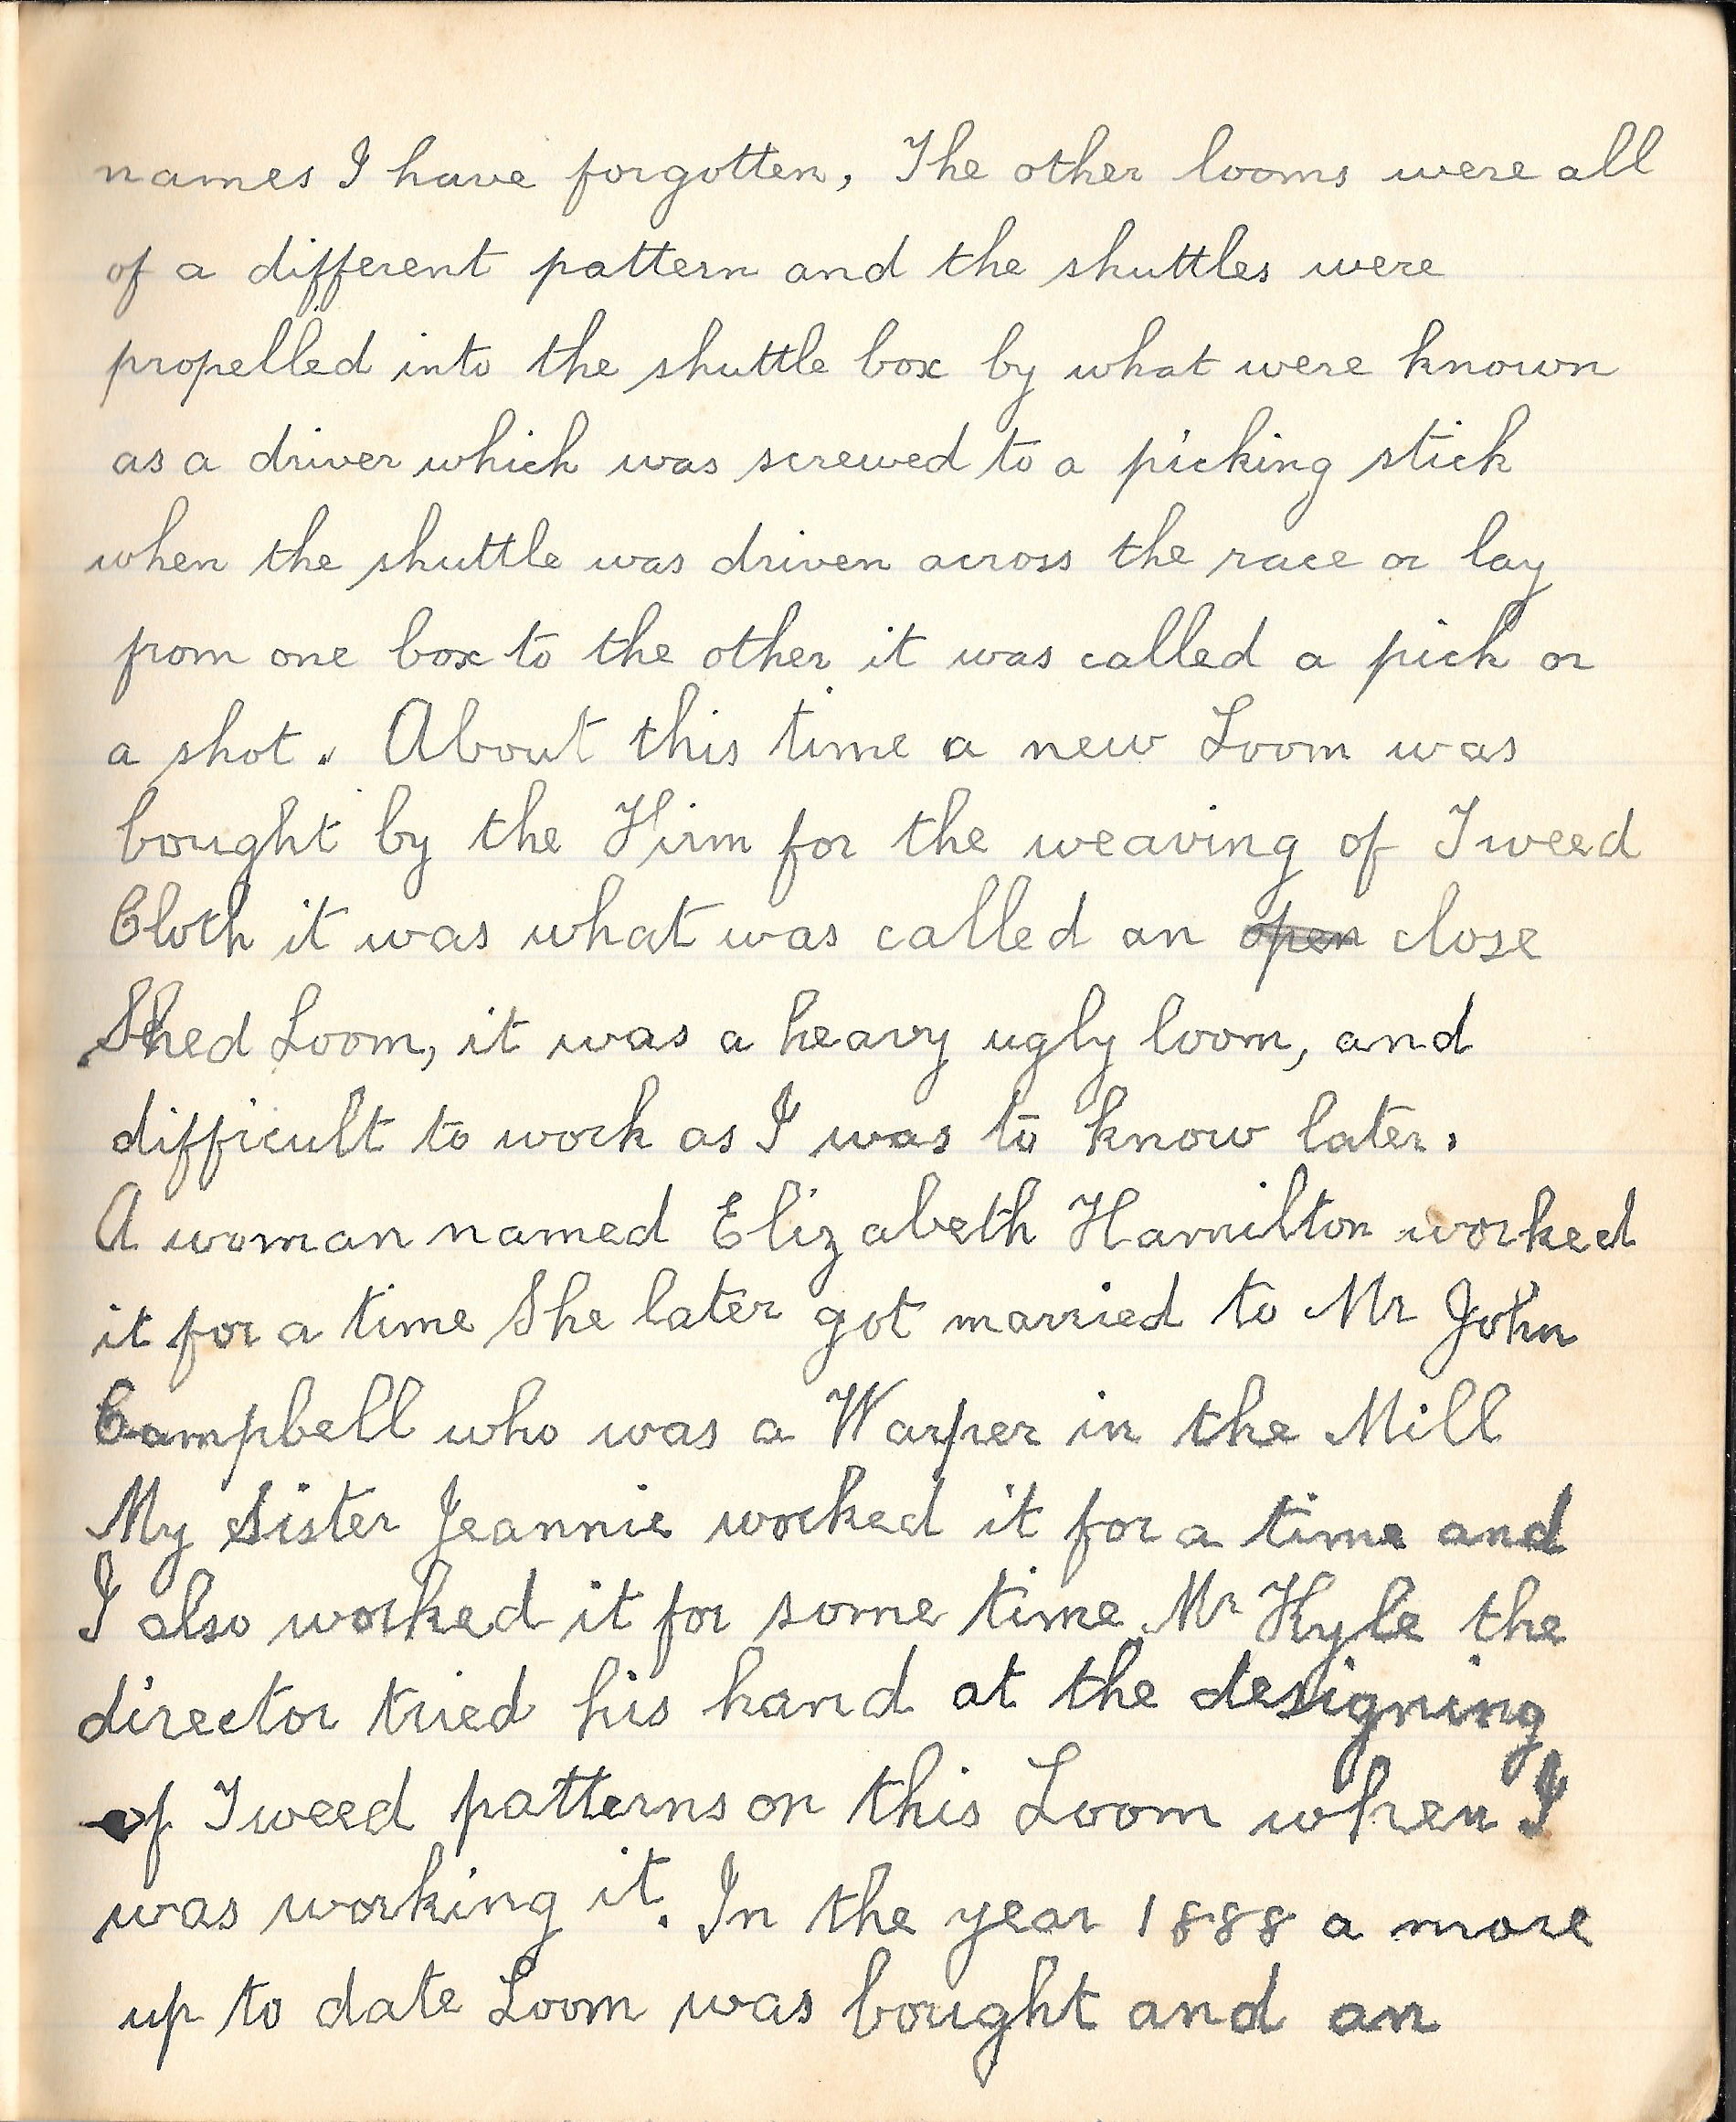 names I have forgotten, The other looms were all
of a different pattern and the shuttles were
propelled into the shuttle box by what were known
as a driver which was screwed to a picking stick
when the shuttle was driven across the race or lay
from one box to the other it was called a pick or
a shot. About this time a new Loom was
bought by the Firm for the weaving of Tweed
Cloth it was what was called an open close
Shed Loom, it was a heavy ugly loom, and
difficult to work as I was to know later.
A woman named Elizabeth Hamilton worked
it for a time She later got married to Mr John
Campbell who was a Warper in the Mill
My Sister Jeannie worked it for a time and
I also worked it for some time Mr Kyle the
director tried his hand at the designing
of Tweed patterns on this Loom when I
was working it. In the year 1888 a more
up to date Loom was bought and an